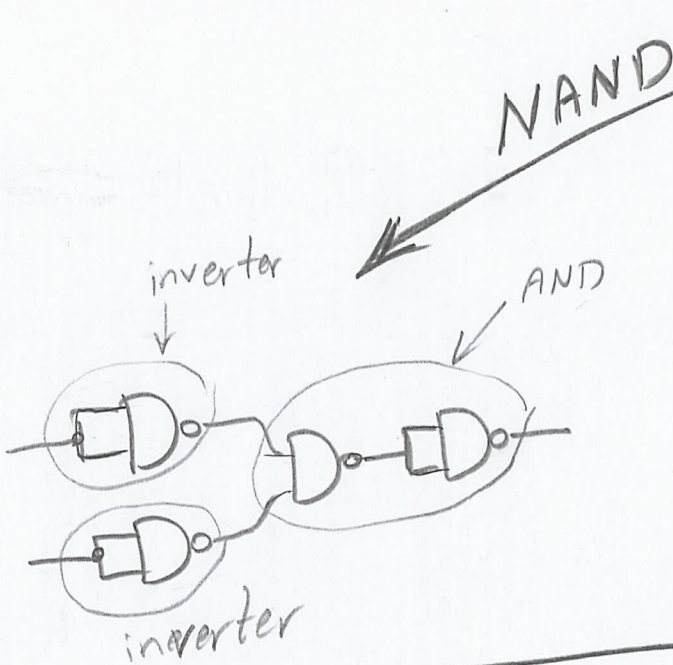 NAND
inverter
AND
inverter